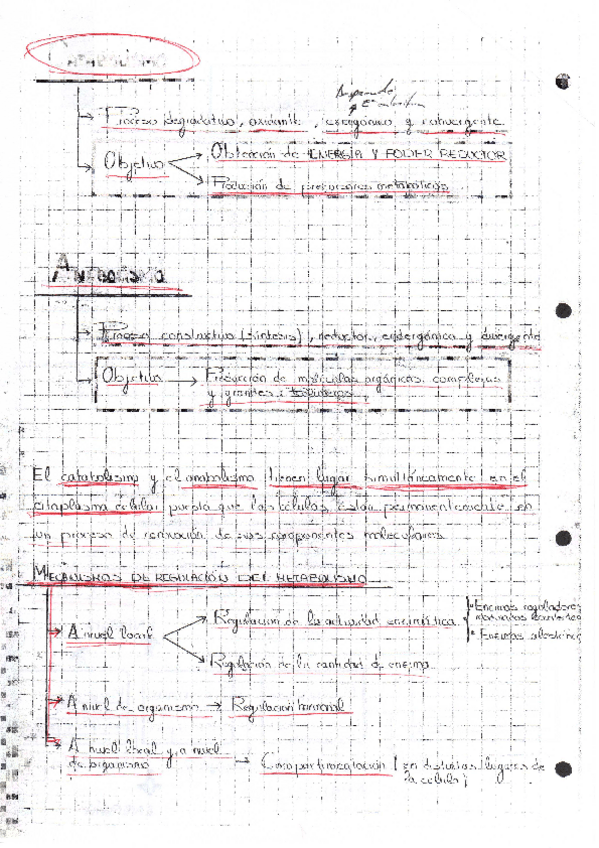 CATABOLISMO
Proceso degradativo, oxidante, exergónico y convergente
Objetivo
Obtención de ENERGÍA Y PODER REDUCTOR
Producción de precursores metabólicos
ANABOLISMO
Proceso constructivo (síntesis), reductor, endergónico y divergente
Objetivo → Producción de moléculas orgánicas complejas
y grandes:
El catabolismo y el anabolismo tienen lugar simultáneamente en el
citoplasma celular puesto que las células están permanentemente en
un proceso de renovación de sus componentes moleculares.
MECANISMOS DE REGULACIÓN DEL METABOLISMO
A nivel local
Regulación de la actividad enzimática
Enzimas reguladores
Enzimas
Regulación de la cantidad de enzima
A nivel de organismo → Regulación hormonal
A nivel local y a nivel
de organismo → Compartimentación (en distintos lugares de
la célula)